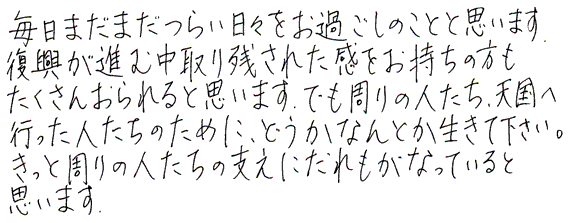 毎日まだまだつらい日々をお過ごしのことと思います.
復興が進む中取り残された感をお持ちの方も
たくさんおられると思います.でも周りの人たち、天国へ
行った人たちのために、どうかなんとか生きて下さい。
きっと周りの人たちの支えにだれもがなっていると
思います.